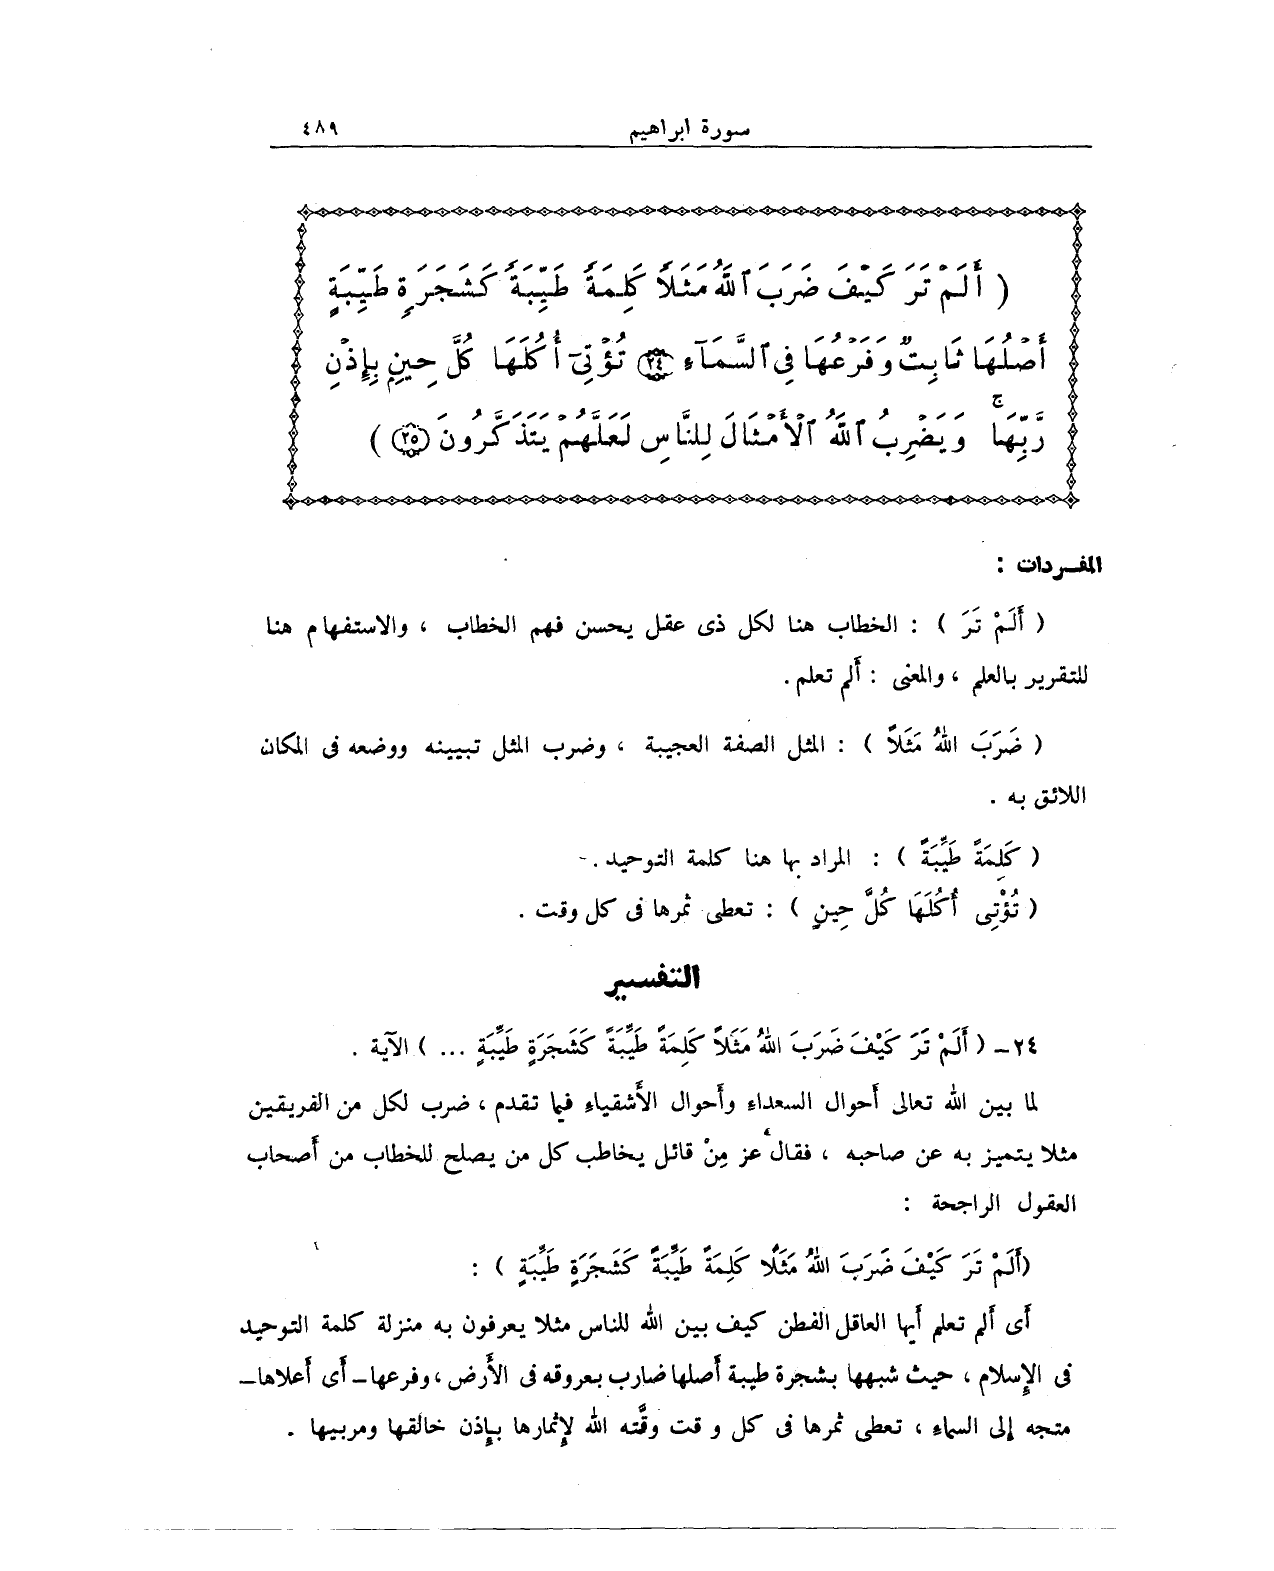 سورة ابراهيم ٤٨٩
( أَلَمْ تَرَ كَيْفَ ضَرَبَ ٱللَّهُ مَثَلًا كَلِمَةً طَيِّبَةً كَشَجَرَةٍ طَيِّبَةٍ
أَصْلُهَا ثَابِتٌ وَفَرْعُهَا فِى ٱلسَّمَآءِ ۝٢٤ تُؤْتِىٓ أُكُلَهَا كُلَّ حِينٍۭ بِإِذْنِ
رَبِّهَا ۗ وَيَضْرِبُ ٱللَّهُ ٱلْأَمْثَالَ لِلنَّاسِ لَعَلَّهُمْ يَتَذَكَّرُونَ ۝٢٥ )
المفردات :
( أَلَمْ تَرَ ) : الخطاب هنا لكل ذى عقل يحسن فهم الخطاب ، والاستفهام هنا
للتقرير بالعلم ، والمعنى : ألم تعلم .
( ضَرَبَ اللهُ مَثَلاً ) : المثل الصفة العجيبة ، وضرب المثل تبيينه ووضعه فى المكان
اللائق به .
( كَلِمَةً طَيِّبَةً ) : المراد بها هنا كلمة التوحيد .
( تُؤْتِى أُكُلَهَا كُلَّ حِينٍ ) : تعطى ثمرها فى كل وقت .
التفسير
٢٤ – ( أَلَمْ تَرَ كَيْفَ ضَرَبَ اللهُ مَثَلاً كَلِمَةً طَيِّبَةً كَشَجَرَةٍ طَيِّبَةٍ ... ) الآية .
لما بين الله تعالى أحوال السعداء وأحوال الأشقياء فيما تقدم ، ضرب لكل من الفريقين
مثلا يتميز به عن صاحبه ، فقال عز مِنْ قائل يخاطب كل من يصلح للخطاب من أصحاب
العقول الراجحة :
(أَلَمْ تَرَ كَيْفَ ضَرَبَ اللهُ مَثَلًا كَلِمَةً طَيِّبَةً كَشَجَرَةٍ طَيِّبَةٍ ) :
أى ألم تعلم أيها العاقل الفطن كيف بين الله للناس مثلا يعرفون به منزلة كلمة التوحيد
فى الإسلام ، حيث شبهها بشجرة طيبة أصلها ضارب بعروقه فى الأرض ، وفرعها – أى أعلاها –
متجه إلى السماء ، تعطى ثمرها فى كل و قت وقَّته الله لإثمارها بإذن خالقها ومربيها .